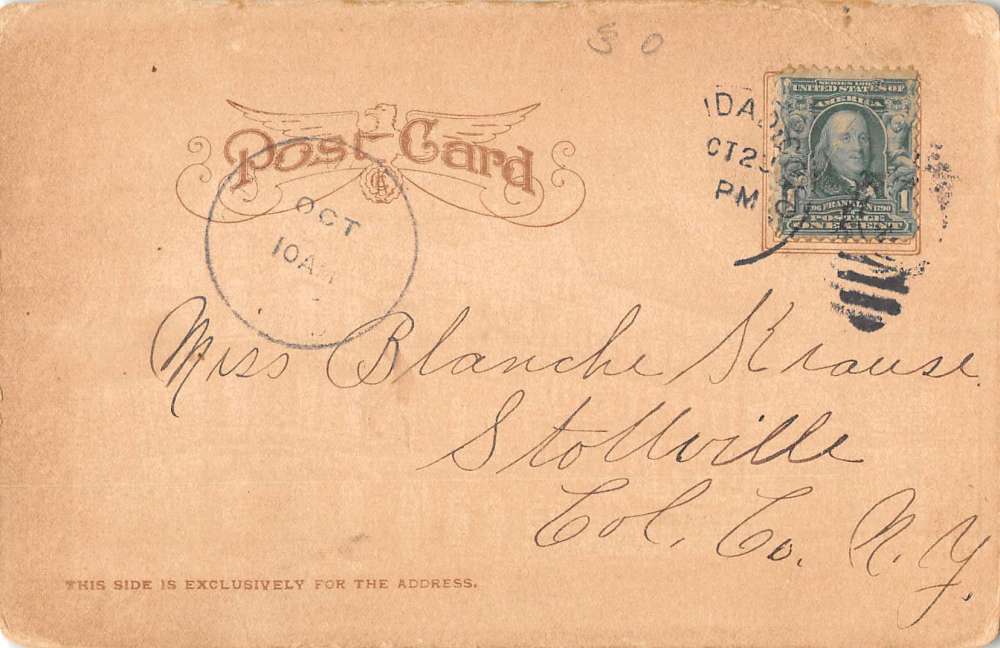 3 0
Post Card
SERIES 1902
UNITED STATES OF
AMERICA
1706 FRANKLIN 1790
1 POSTAGE 1
ONE CENT
PM
OCT
10 AM
Miss Blanche Krause.
Stottville
Col. Co. N. Y.
THIS SIDE IS EXCLUSIVELY FOR THE ADDRESS.